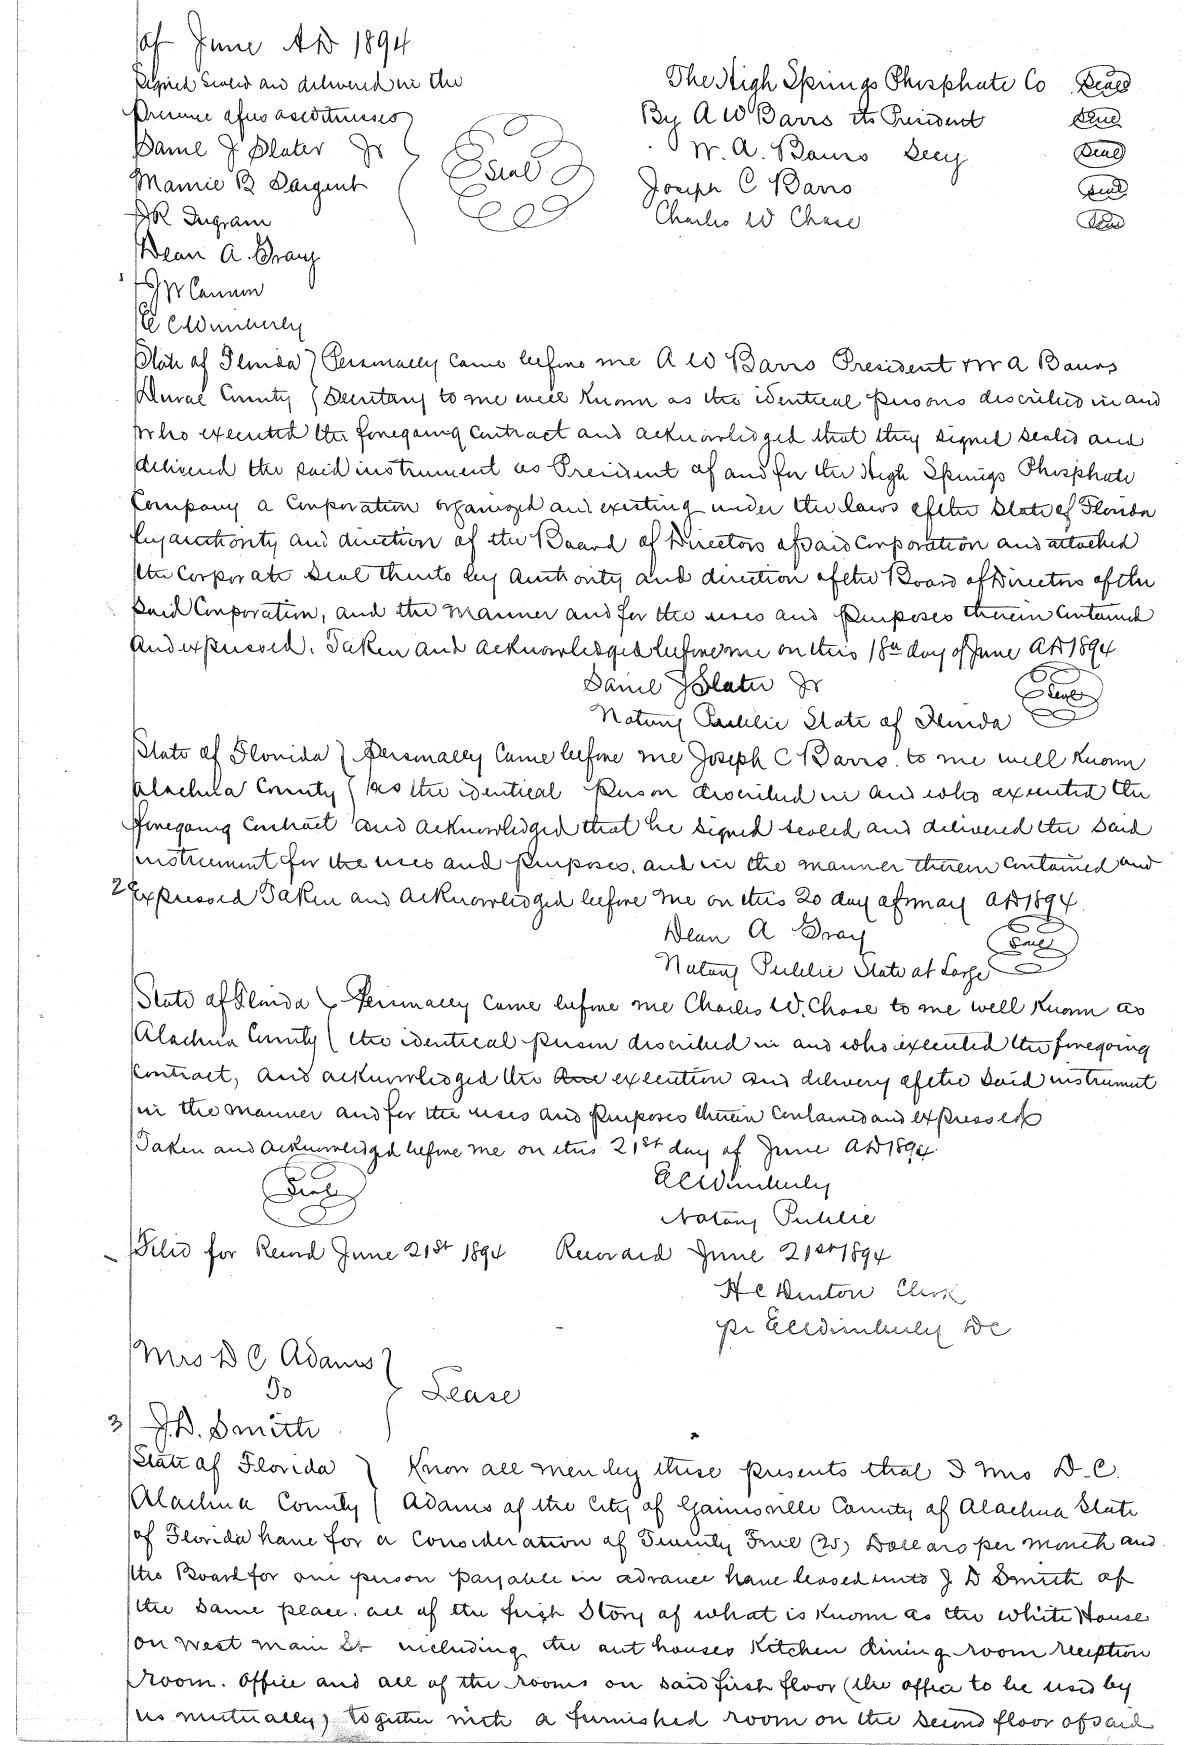 of June AD 1894
Signed Sealed and delivered in the
presence of us as witnesses
The High Springs Phosphate Co Seal
By A W Barrs its President Seal
Daniel J Slater Jr
Seal
W. A. Barrs Secy Seal
Mamie B Sargent
Joseph C Barrs Seal
J R Ingram
Charles W Chase Seal
Dean A. Gray
J W Cannon
E C Wimberly
State of Florida } Personally came before me A W Barrs President & W A Barrs
Duval County } Secretary to me well known as the identical persons described in and
who executed the foregoing contract and acknowledged that they signed sealed and
delivered the said instrument as President of and for the High Springs Phosphate
Company a Corporation organized and existing under the laws of the State of Florida
by authority and direction of the Board of Directors of said Corporation and attached
the Corporate Seal thereto by authority and direction of the Board of Directors of the
said Corporation, and the manner and for the uses and purposes therein contained
and expressed. Taken and acknowledged before me on this 18th day of June AD 1894
Daniel J Slater Jr Seal
Notary Public State of Florida
State of Florida } Personally came before me Joseph C Barrs. to me well known
Alachua County } as the identical person described in and who executed the
foregoing contract and acknowledged that he signed sealed and delivered the said
instrument for the uses and purposes, and in the manner therein contained and
2 expressed Taken and acknowledged before me on this 20 day of May AD 1894.
Dean A Gray Seal
Notary Public State at Large
State of Florida } Personally came before me Charles W. Chase to me well known as
Alachua County } the identical person described in and who executed the foregoing
contract, and acknowledged the execution and delivery of the said instrument
in the manner and for the uses and purposes therein contained and expressed
Taken and acknowledged before me on this 21st day of June AD 1894
Seal E C Wimberly
Notary Public
Filed for Record June 21st 1894 Recorded June 21st 1894
H C Denton Clerk
pr E C Wimberly DC
Mrs D C Adams }
To } Lease
3 J. D. Smith
State of Florida } Know all men by these presents that I Mrs D. C.
Alachua County } Adams of the City of Gainesville County of Alachua State
of Florida have for a consideration of Twenty Five (25) Dollars per month and
the Board for one person payable in advance have leased unto J D Smith of
the same place. all of the first Story of what is known as the White House
on West Main St including the out houses Kitchen dining room reception
room. office and all of the rooms on said first floor (the office to be used by
us mutually) together with a furnished room on the second floor of said